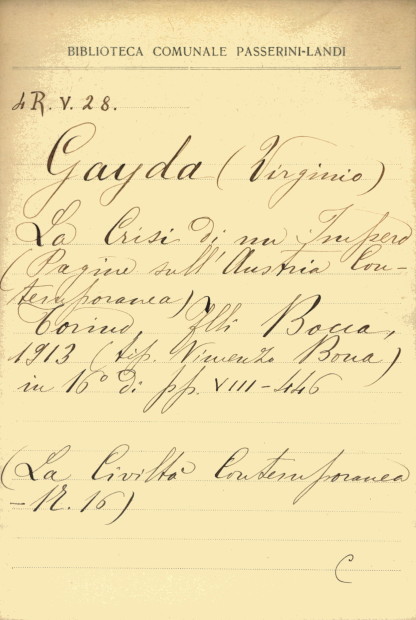 BIBLIOTECA COMUNALE PASSERINI-LANDI
4R. V. 28.
Gayda (Virginio)
La Crisi di un Impero
(Pagine sull'Austria Con-
temporanea)
Torino, Flli Bocca,
1913 (tip. Vincenzo Bona)
in 16° di pp. VIII-446
(La Civiltà Contemporanea
- N. 16)
C